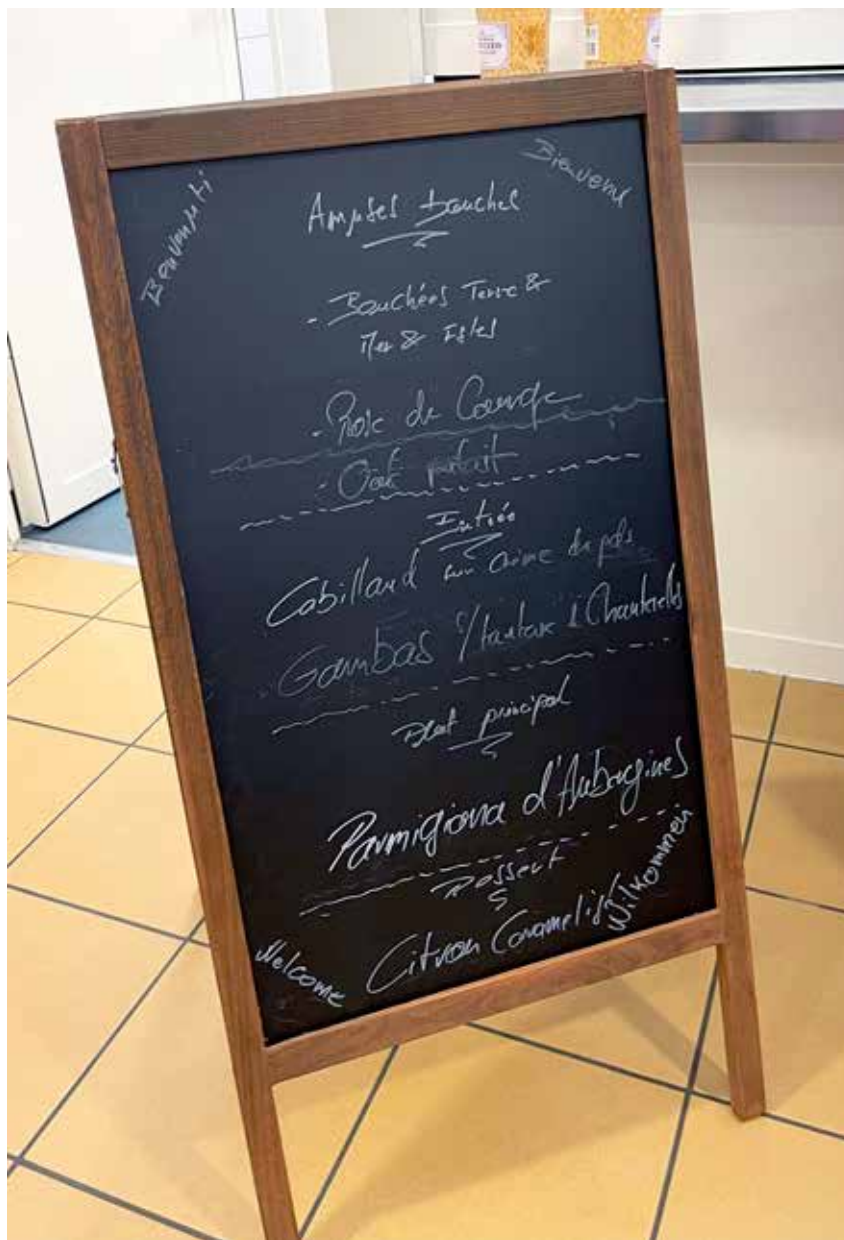 Benvenuti
Bienvenue
Amuses bouches
- Bouchées Terre &
Mer & Isles
- Rose de Courge
- Oeuf parfait
Entrée
Cabillaud sur crème de pois
Gambas s/ tartare d Chanterelles
Plat principal
Parmigiana d'Aubergines
Dessert
Citron Caramelisé
Welcome
Wilkommen